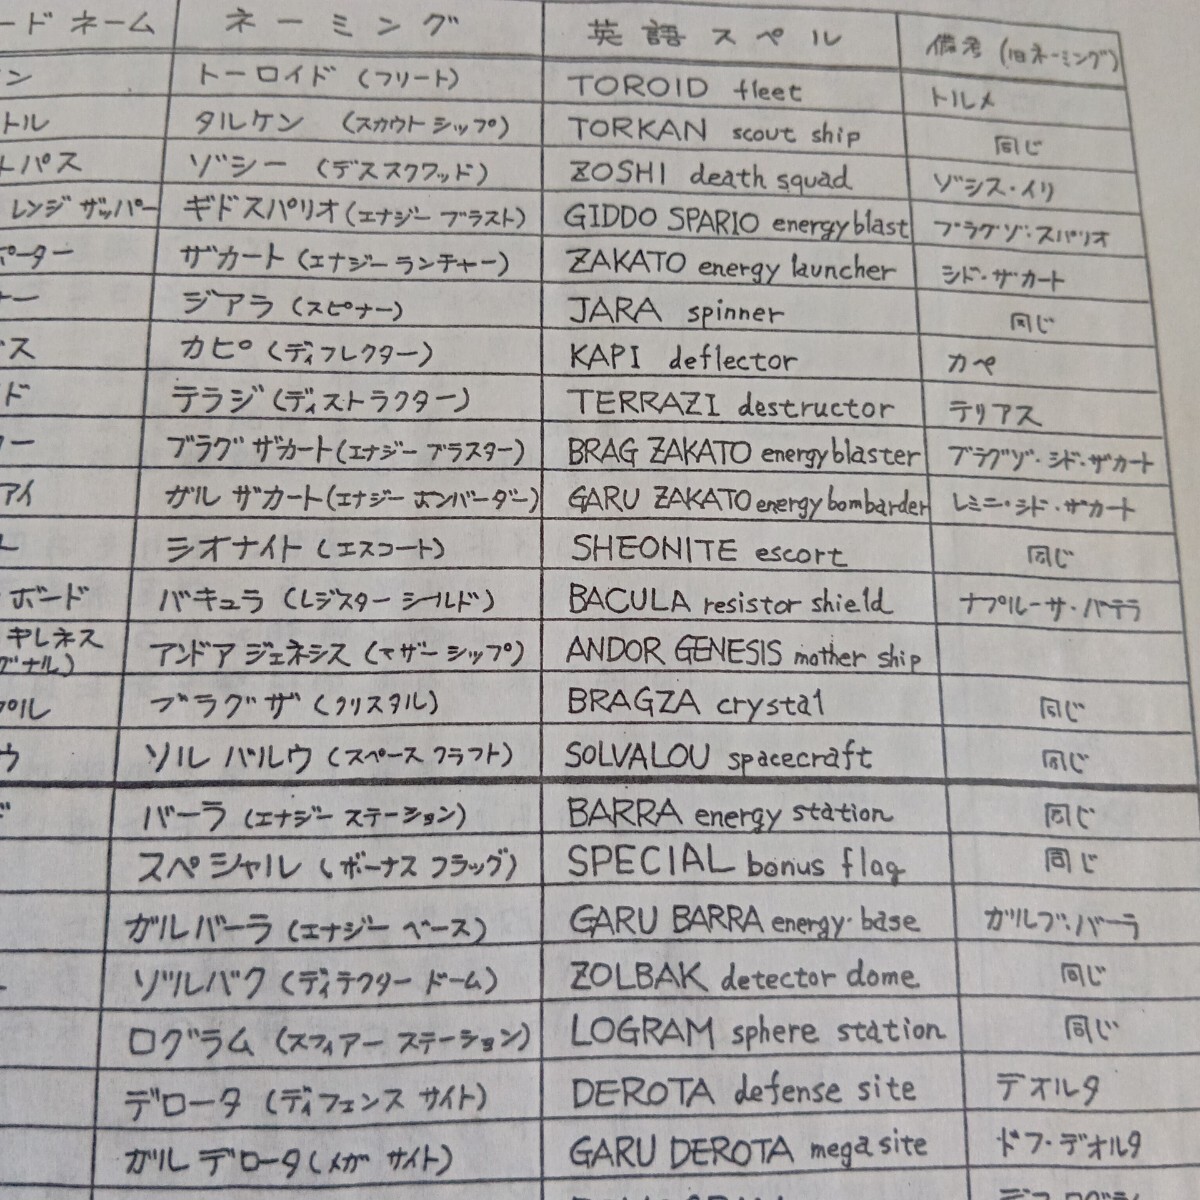 ードネーム ネーミング 英語スペル 備考(旧ネーミング)
ン トーロイド(フリート) TOROID fleet トルメ
トル タルケン (スカウトシップ) TORKAN scout ship 同じ
トパス ゾシー (デススクワッド) ZOSHI death squad ゾシス・イリ
レンジザッパー ギドスパリオ(エナジーブラスト) GIDDO SPARIO energy blast ブラグ・ゾ・スパリオ
ポーター ザカート (エナジーランチャー) ZAKATO energy launcher シド・ザカート
ナー ジアラ (スピナー) JARA spinner 同じ
ス カピ (ディフレクター) KAPI deflector カペ
ド テラジ (ディストラクター) TERRAZI destructor テリアス
ター ブラグザカート(エナジーブラスター) BRAG ZAKATO energy blaster ブラグゾ・シド・ザカート
アイ ガルザカート(エナジーボンバーダー) GARU ZAKATO energy bombarder レミニ・シド・ザカート
ト シオナイト (エスコート) SHEONITE escort 同じ
ボード バキュラ (レジスターシールド) BACULA resistor shield ナプルーサ・バテラ
キレネス
グナル) アンドアジェネシス (マザーシップ) ANDOR GENESIS mother ship
プル ブラグザ (クリスタル) BRAGZA crystal 同じ
ウ ソルバルウ (スペースクラフト) SOLVALOU spacecraft 同じ
バーラ (エナジーステーション) BARRA energy station 同じ
スペシャル (ボーナスフラッグ) SPECIAL bonus flag 同じ
ガルバーラ (エナジーベース) GARU BARRA energy・base ガルブ・バーラ
ゾルバク (ディテクタードーム) ZOLBAK detector dome 同じ
ログラム (スフィアーステーション) LOGRAM sphere station 同じ
デロータ (ディフェンスサイト) DEROTA defense site デオルタ
ガルデロータ(メガサイト) GARU DEROTA mega site ドフ・デオルタ